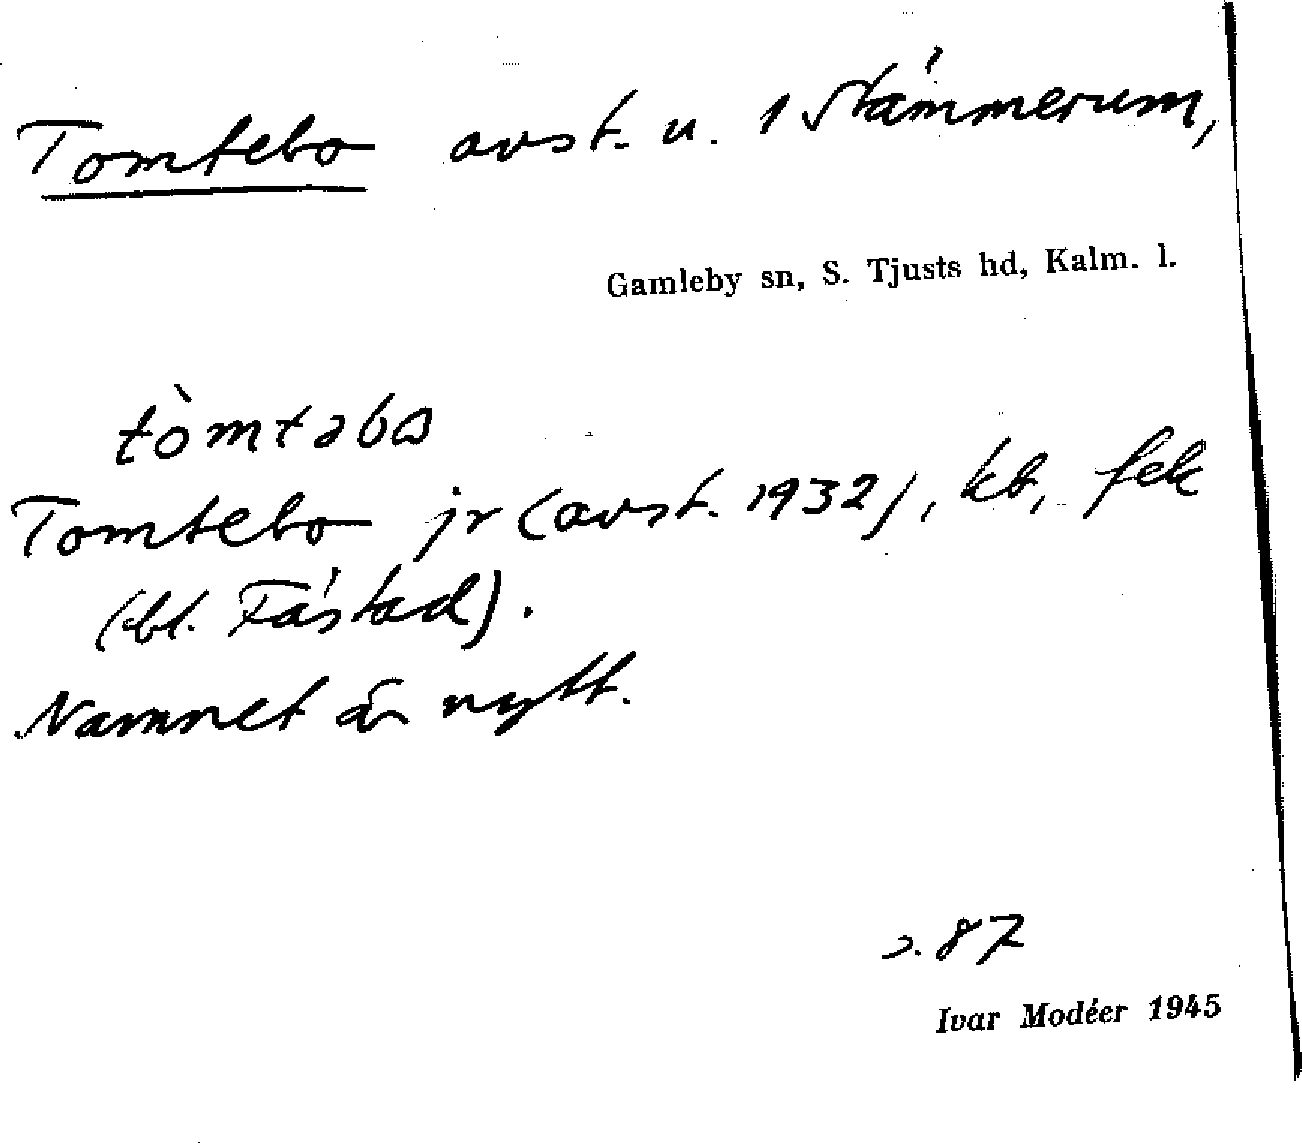 Tomtebo avst. u. 1 Stämmerum,
Gamleby sn, S. Tjusts hd, Kalm. l.
tòmtəbω
Tomtebo jr (avst. 1932), kb, fek
(bl. Fåstad).
Namnet är nytt.
s. 87
Ivar Modéer 1945